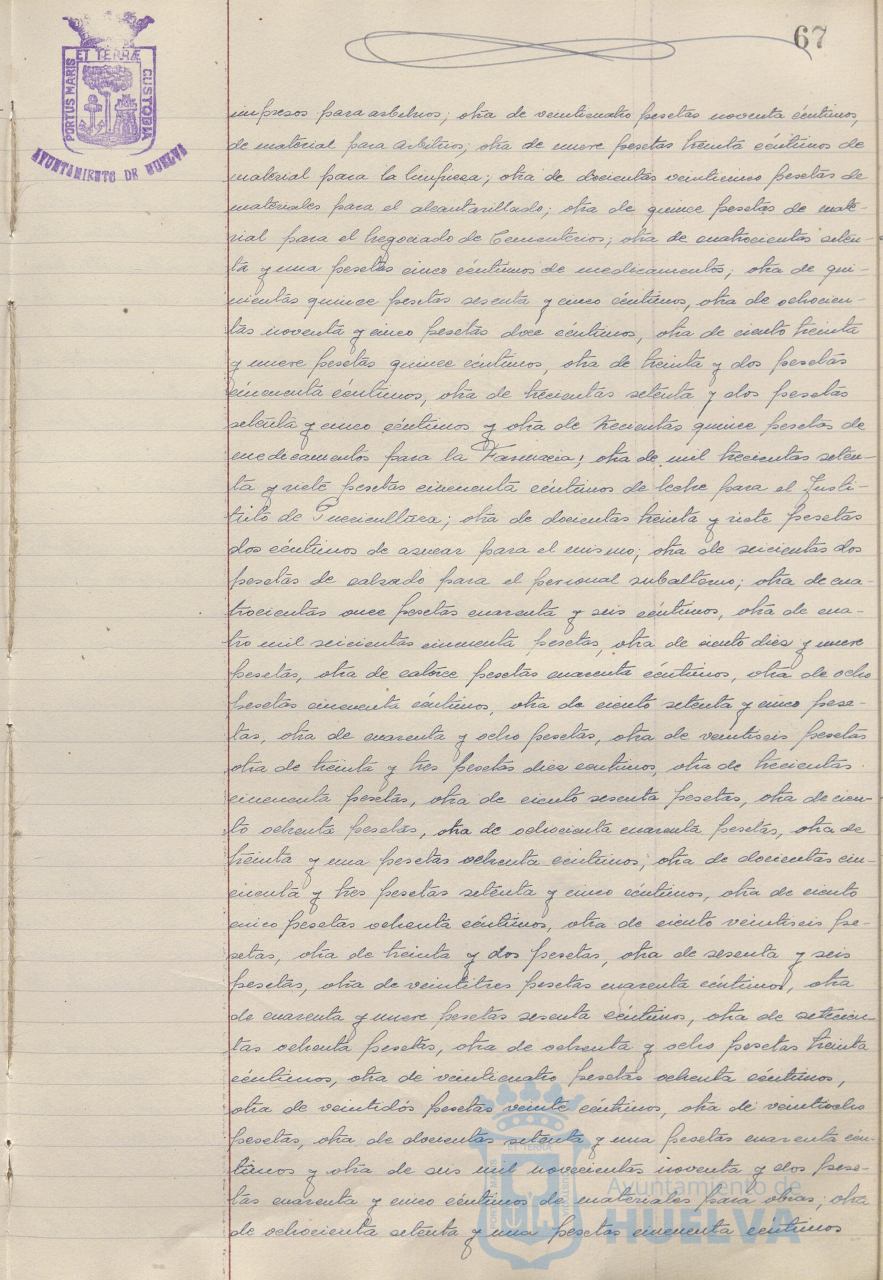 67
ET TERRÆ
PORTUS MARIS
CUSTODIA
AYUNTAMIENTO DE HUELVA
impresos para arbitrios; otra de veinticuatro pesetas noventa céntimos,
de material para arbitrios; otra de nueve pesetas treinta céntimos de
material para la limpieza; otra de docientas veinticinco pesetas de
materiales para el alcantarillado; otra de quince pesetas de mate-
rial para el Negociado de Cementerios; otra de cuatrocientas seten-
ta y una pesetas cinco céntimos de medicamentos; otra de qui-
nientas quince pesetas sesenta y cinco céntimos, otra de ochocien-
tas noventa y cinco pesetas doce céntimos, otra de ciento treinta
y nueve pesetas quince céntimos, otra de treinta y dos pesetas
cincuenta céntimos, otra de trecientas setenta y dos pesetas
setenta y cinco céntimos y otra de trecientas quince pesetas de
medicamentos para la Farmacia; otra de mil trecientas seten-
ta y siete pesetas cincuenta céntimos de leche para el Insti-
tuto de Puericultura; otra de docientas treinta y siete pesetas
dos céntimos de azucar para el mismo; otra de seicientas dos
pesetas de calzado para el personal subalterno; otra de cua-
trocientas once pesetas cuarenta y seis céntimos, otra de cua-
tro mil seicientas cincuenta pesetas, otra de ciento diez y nueve
pesetas, otra de catorce pesetas cuarenta céntimos, otra de ocho
pesetas cincuenta céntimos, otra de ciento setenta y cinco pese-
tas, otra de cuarenta y ocho pesetas, otra de veintiseis pesetas
otra de treinta y tres pesetas diez centimos, otra de trecientas
cincuenta pesetas, otra de ciento sesenta pesetas, otra de cien-
to ochenta pesetas, otra de ochocienta cuarenta pesetas, otra de
treinta y una pesetas ochenta céntimos; otra de docientas cin-
cuenta y tres pesetas setenta y cinco céntimos, otra de ciento
cinco pesetas ochenta céntimos, otra de ciento veintiseis pe-
setas, otra de treinta y dos pesetas, otra de sesenta y seis
pesetas, otra de veintitres pesetas cuarenta céntimos, otra
de cuarenta y nueve pesetas sesenta céntimos, otra de setecien-
tas ochenta pesetas, otra de ochenta y ocho pesetas treinta
céntimos, otra de veinticuatro pesetas ochenta céntimos,
otra de veintidós pesetas veinte céntimos, otra de veintiocho
pesetas, otra de docientas setenta y una pesetas cuarenta cén-
timos y otra de seis mil novecientas noventa y dos pese-
tas cuarenta y cinco céntimos de materiales para obras; otra
de ochocienta setenta y una pesetas cincuenta centimos
Ayuntamiento de
HUELVA